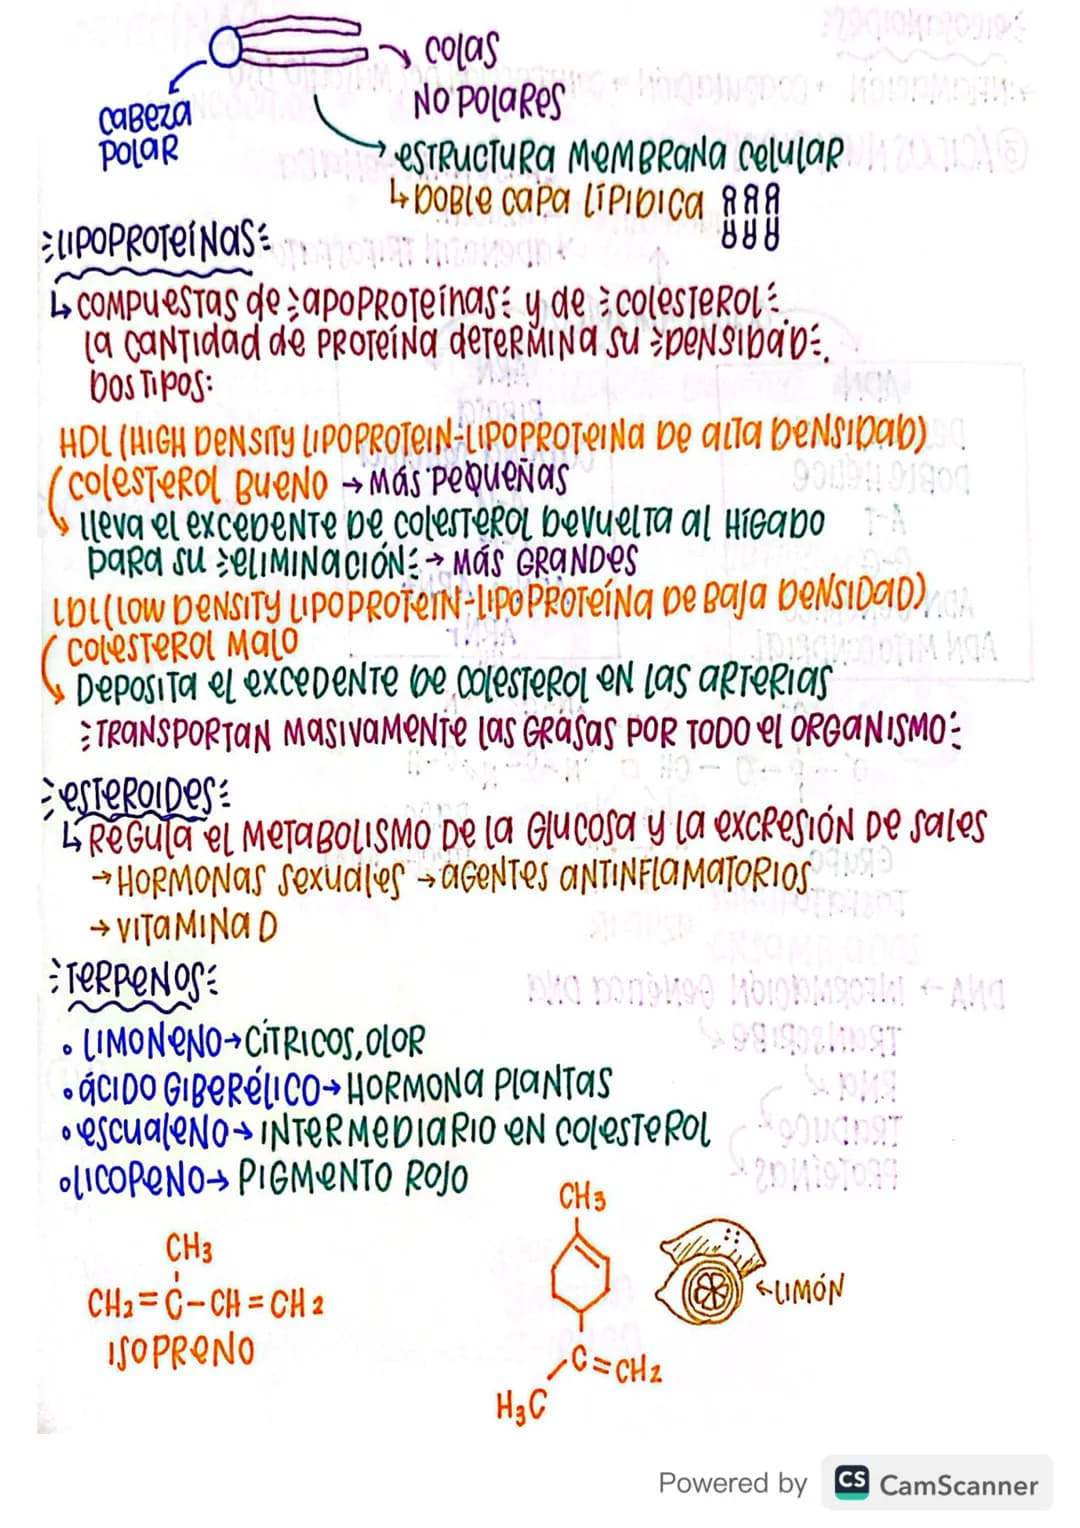 → COLAS
NO POLARES
CABEZA
POLAR
→ ESTRUCTURA MEMBRANA CELULAR
↳ DOBLE CAPA LÍPIDICA
LIPOPROTEÍNAS
↳ COMPUESTAS DE APOPROTEÍNAS Y DE COLESTEROL
LA CANTIDAD DE PROTEÍNA DETERMINA SU DENSIDAD.
DOS TIPOS:
HDL (HIGH DENSITY LIPOPROTEIN-LIPOPROTEINA DE ALTA DENSIDAD)
COLESTEROL BUENO → MÁS PEQUEÑAS
LLEVA EL EXCEDENTE DE COLESTEROL DEVUELTA AL HÍGADO
PARA SU ELIMINACIÓN → MÁS GRANDES
LDL (LOW DENSITY LIPOPROTEIN-LIPOPROTEÍNA DE BAJA DENSIDAD)
COLESTEROL MALO
DEPOSITA EL EXCEDENTE DE COLESTEROL EN LAS ARTERIAS
TRANSPORTAN MASIVAMENTE LAS GRASAS POR TODO EL ORGANISMO
ESTEROIDES
↳ REGULA EL METABOLISMO DE LA GLUCOSA Y LA EXCRESIÓN DE SALES
→ HORMONAS SEXUALES → AGENTES ANTINFLAMATORIOS
→ VITAMINA D
TERPENOS
• LIMONENO → CÍTRICOS, OLOR
• ÁCIDO GIBERÉLICO → HORMONA PLANTAS
• ESCUALENO → INTERMEDIARIO EN COLESTEROL
• LICOPENO → PIGMENTO ROJO
CH3
CH2 = C - CH = CH2
ISOPRENO
CH3
C = CH2
H3C
← LIMÓN
Powered by CS CamScanner